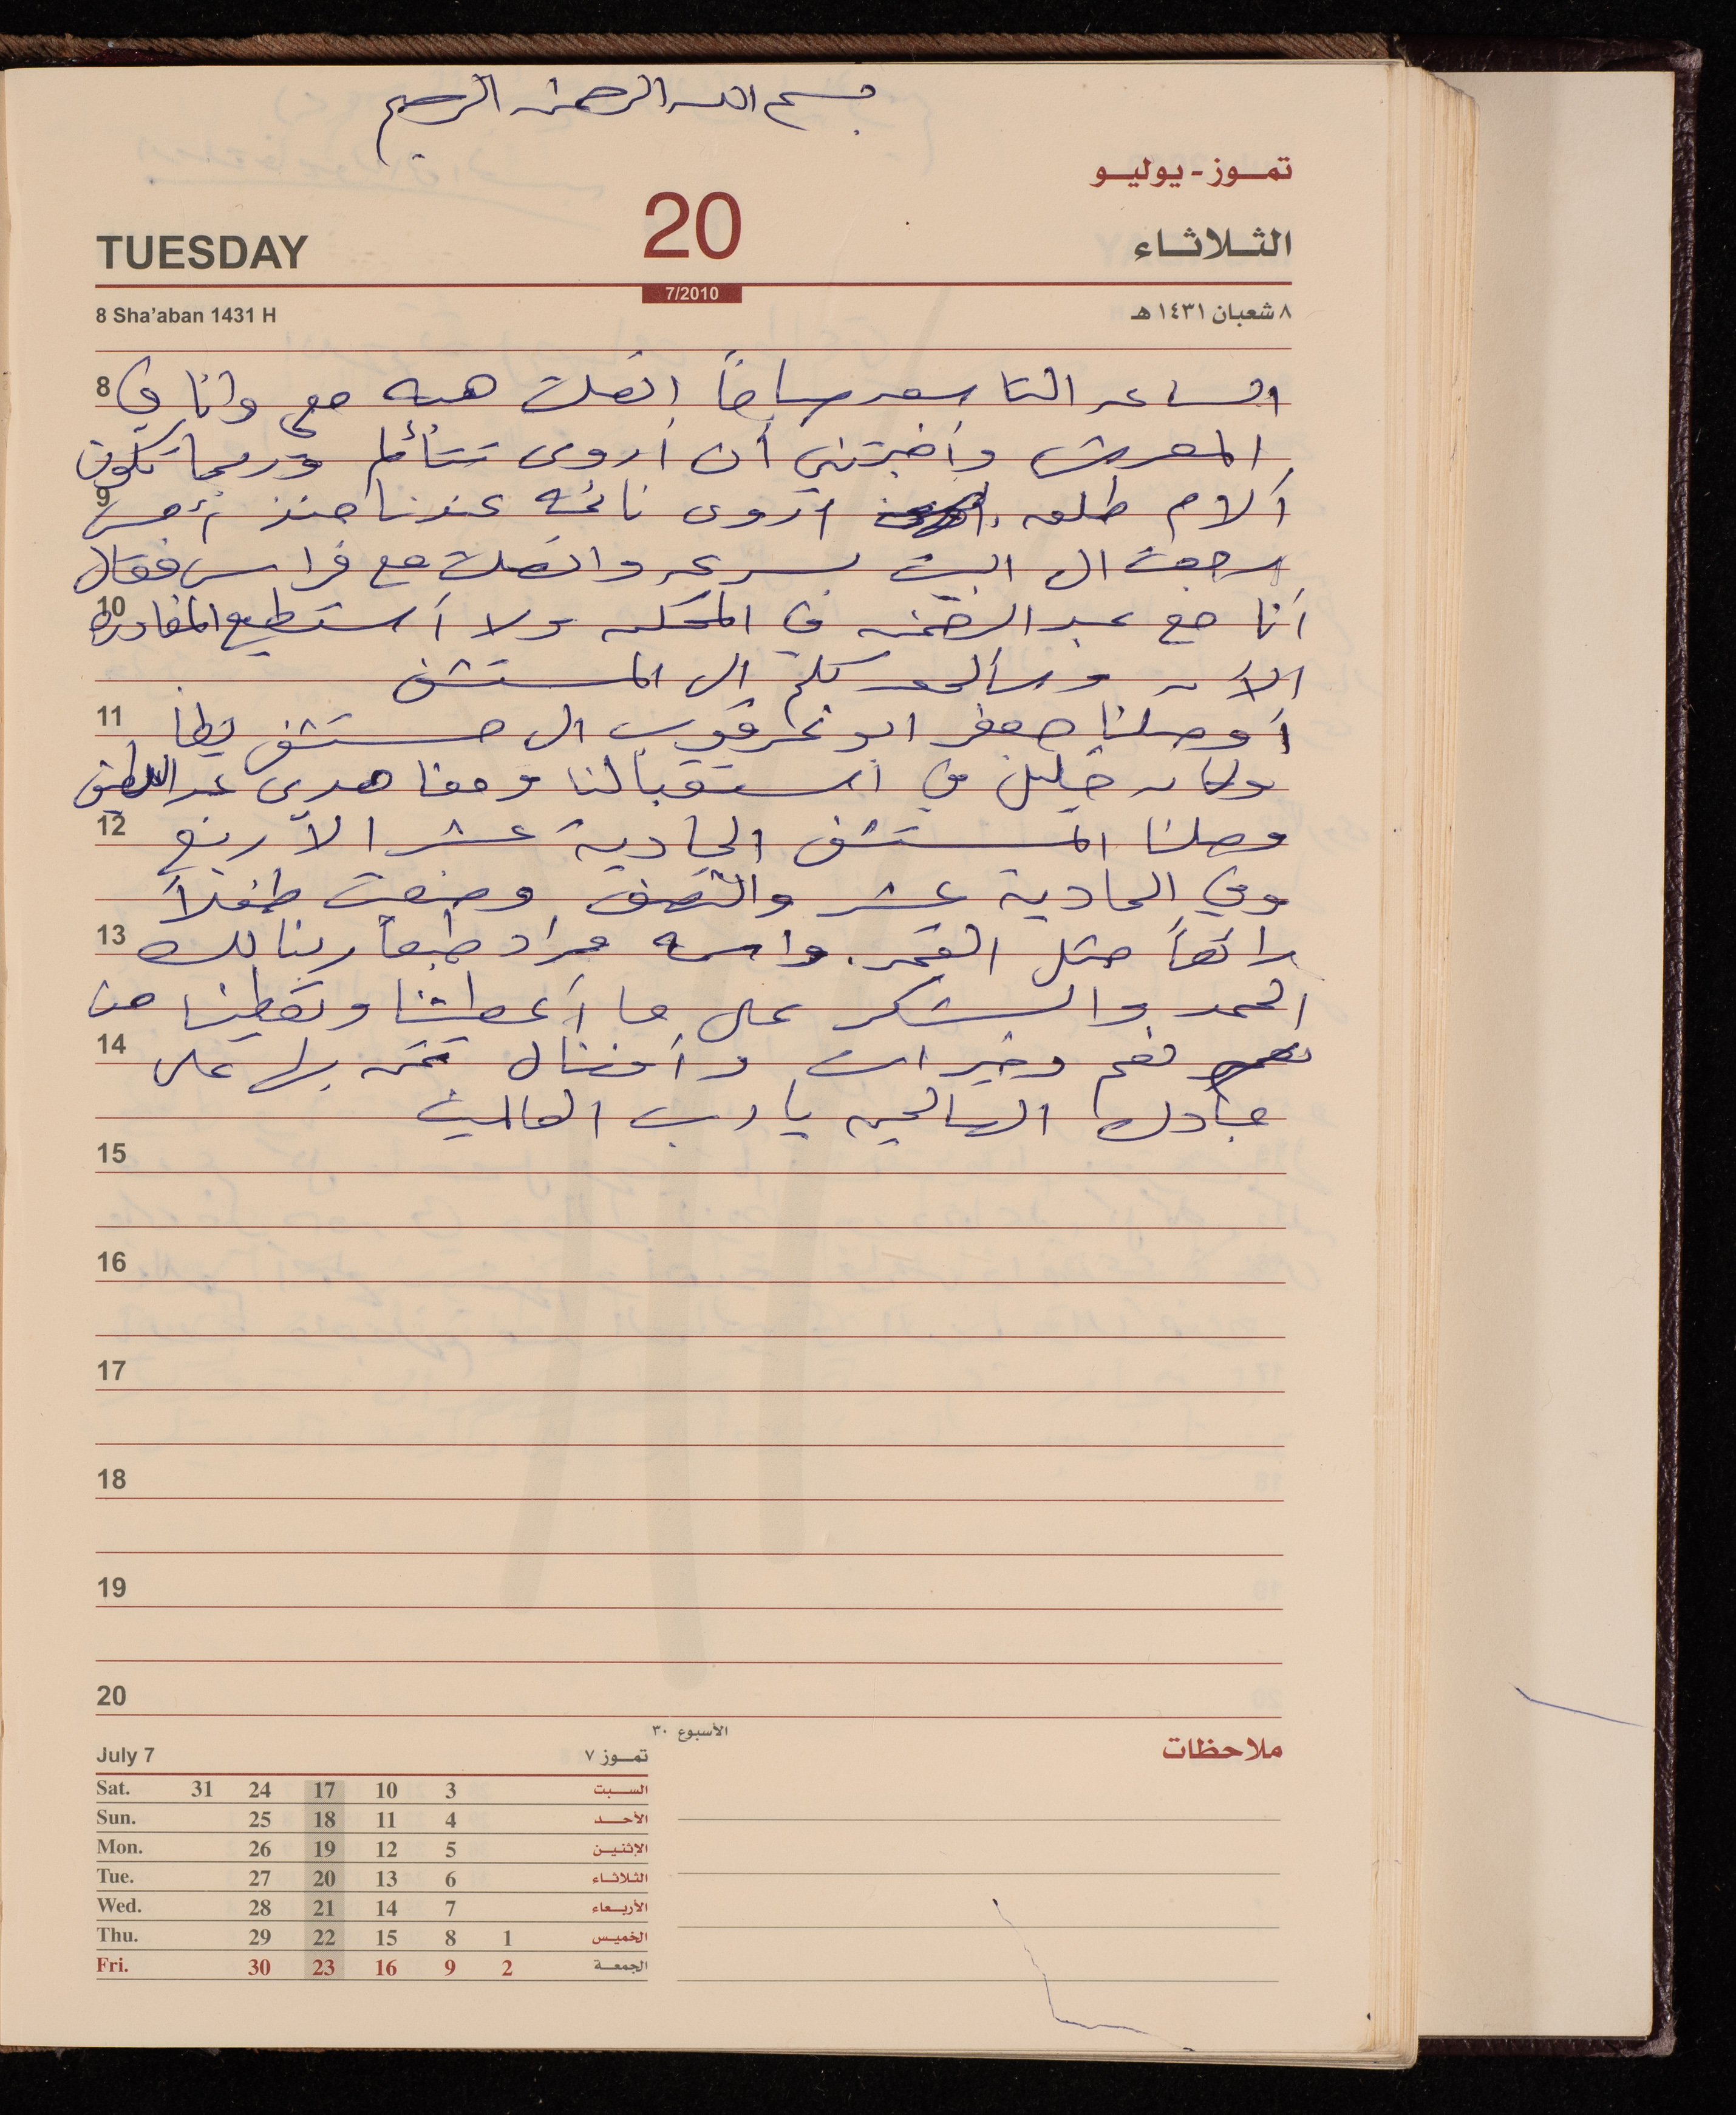 بسم الله الرحمن الرحيم
تمـوز - يوليـو
TUESDAY 20 الثـلاثـاء
7/2010
8 Sha'aban 1431 H ٨ شعبان ١٤٣١ هـ
8 الساعه التاسعه صباحاً اتصلت هبه معي وانا في
المعرش وأخبرتني أن أروى تتألم وربما تكون
9 آلام طلق أروى نائمه عندنا منذ أمس
رجعت الى البيت بسرعه واتصلت مع فراس فقال
10 أنا مع عبد الرحمن في المحكمه ولا أستطيع المغادره
الآن وسألحق بكم الى المستشفى
11 أوصلنا جعفر ابو عرقوب الى مستشفى يطا
وكان خليل في استقبالنا ومعنا هدى عبد اللطيف
12 وصلنا المستشفى الحادية عشر الا ربع
وفي الحادية عشر والنصف وضعت طفلاً
13 رائعاً مثل القمر. واسمه مراد طبعاً ربنا لك
الحمد والشكر على ما أعطيتنا وتعطينا من
14 نعم وخيرات وأفضال تمن بها على
عبادك الصالحين يا رب العالمين
15
16
17
18
19
20
الأسبوع ٣٠
ملاحظات
July 7 تمـوز ٧
Sat. 31 24 17 10 3 السـبت
Sun. 25 18 11 4 الأحـد
Mon. 26 19 12 5 الإثنيـن
Tue. 27 20 13 6 الثلاثـاء
Wed. 28 21 14 7 الأربـعاء
Thu. 29 22 15 8 1 الخميـس
Fri. 30 23 16 9 2 الجمعـة